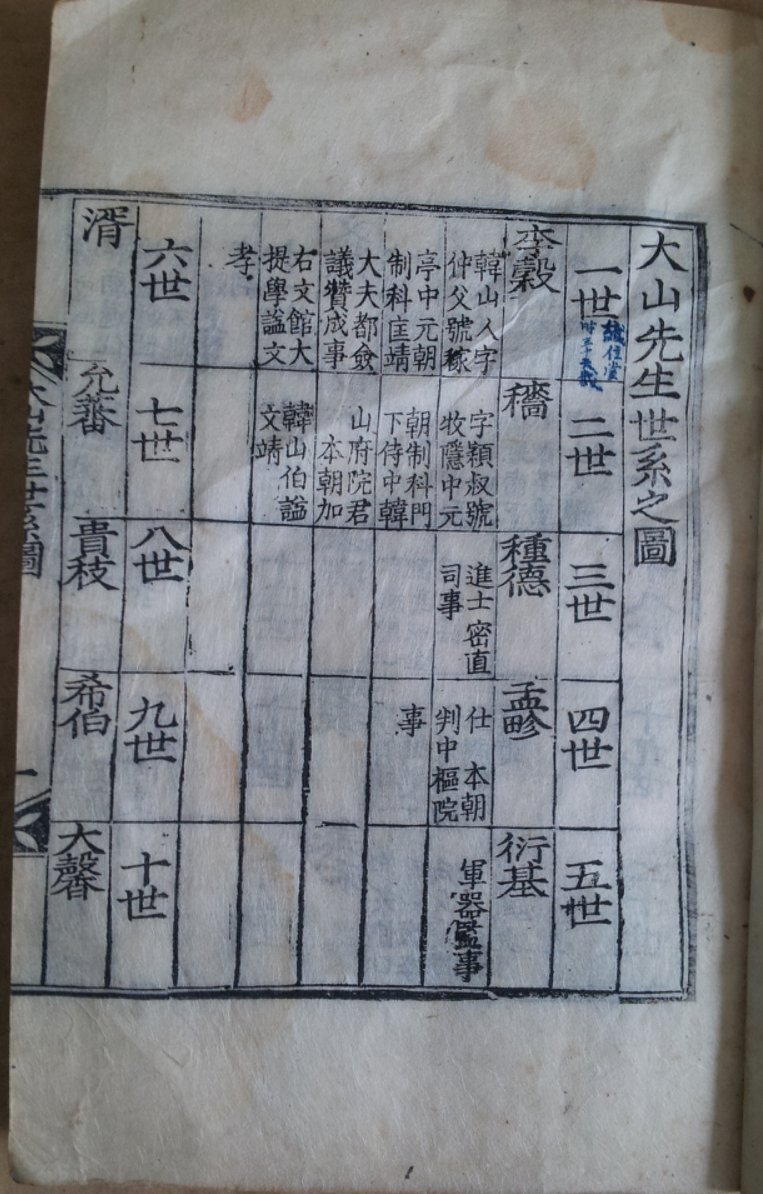 大山先生世系之圖
一世
李穀
韓山人字
仲父號稼
亭中元朝
制科匡靖
大夫都僉
議贊成事
右文館大
提學謚文
孝
二世
穡
字穎叔號
牧隱中元
朝制科門
下侍中韓
山府院君
本朝加
韓山伯謚
文靖
三世
種德
進士密直
司事
四世
孟畛
仕 本朝
判中樞院
事
五世
衍基
軍器監事
六世
湑
七世
允蕃
八世
貴枝
九世
希伯
十世
大馨
大山先生世系圖
一